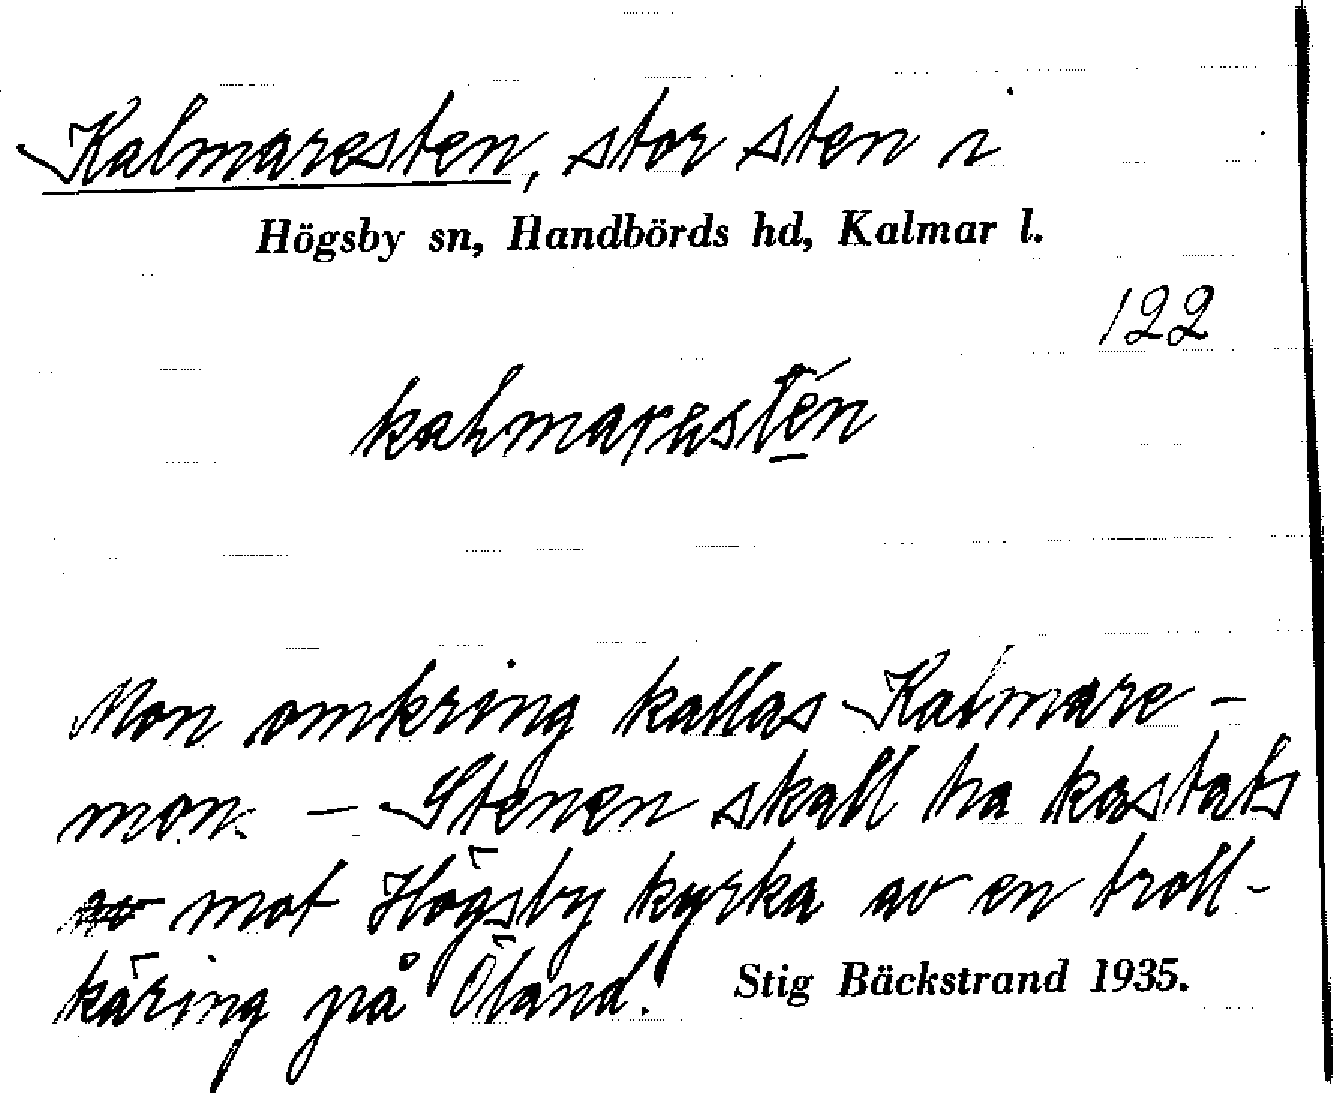 Kalmaresten, stor sten i
Högsby sn, Handbörds hd, Kalmar l.
122
Mon omkring kallas Kalmare-
mon. — Stenen skall ha kastats
mot Högsby kyrka av en troll-
käring på Öland.
Stig Bäckstrand 1935.